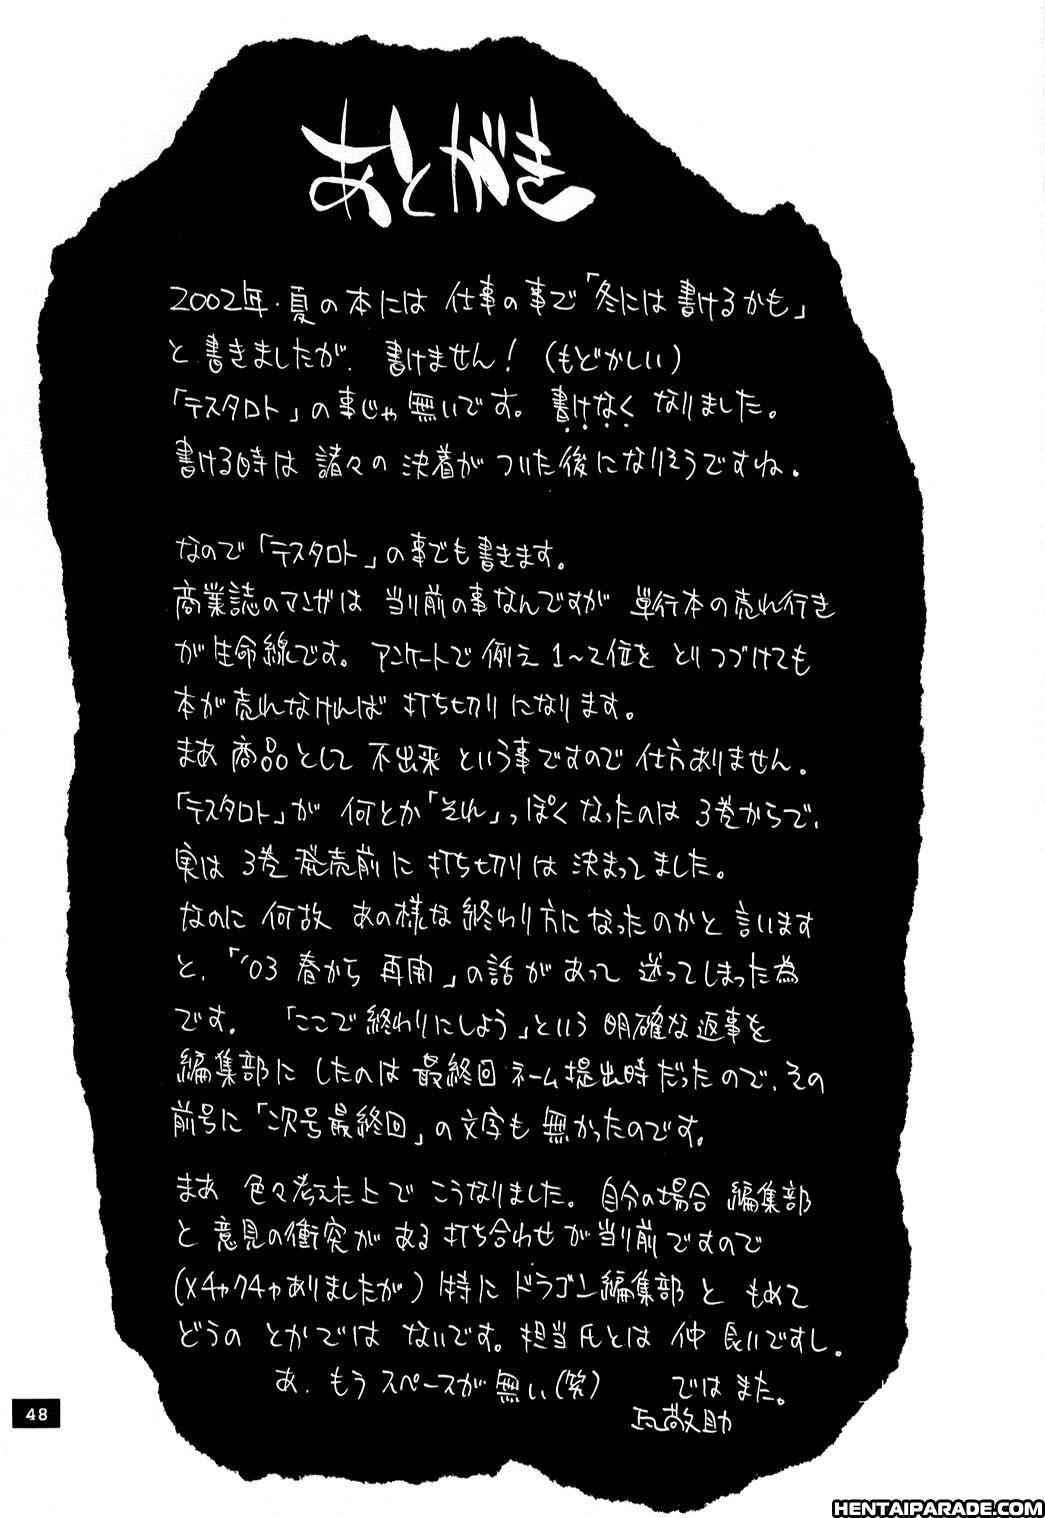 あとがき
2002年・夏の本には 仕事の事で「冬には書けるかも」
と書きましたが、書けません！（もどかしい）
「テスタロト」の事じゃ無いです。書けなく なりました。
書ける時は 諸々の 決着が ついた後になりそうですね。
なので「テスタロト」の事でも書きます。
商業誌のマンガは 当り前の事なんですが 単行本の売れ行き
が生命線です。アンケートで 例え 1〜2位を とりつづけても
本が売れなければ 打ち切りになります。
まあ 商品として 不出来 という事ですので 仕方ありません。
「テスタロト」が 何とか「それ」っぽくなったのは 3巻からで、
実は 3巻 発売前に 打ち切りは 決まってました。
なのに 何故 あの様な終わり方になったのかと 言います
と、「'03 春から 再開」の話があって 迷ってしまった為
です。「ここで終わりにしよう」という 明確な返事を
編集部に したのは 最終回 ネーム提出時だったので、その
前号に「次号最終回」の文字も 無かったのです。
まあ 色々考えた上で こうなりました。自分の場合 編集部
と 意見の衝突が ある 打ち合わせが当り前ですので
（メチャクチャありましたが）特に ドラゴン編集部と もめて
どうの とかでは ないです。担当氏とは 仲 良いですし。
あ、もう スペースが無い（笑） では また。
敬助
48
HENTAIPARADE.COM